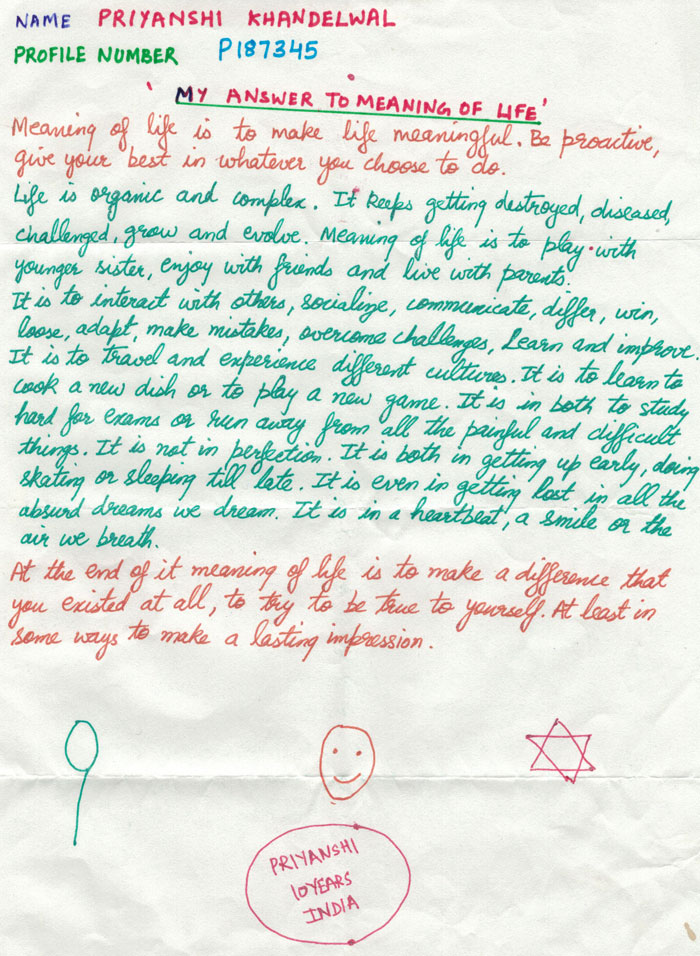 NAME PRIYANSHI KHANDELWAL
PROFILE NUMBER P187345
'MY ANSWER TO MEANING OF LIFE'
Meaning of life is to make life meaningful. Be proactive,
give your best in whatever you choose to do.
Life is organic and complex. It keeps getting destroyed, diseased,
challenged, grow and evolve. Meaning of life is to play with
younger sister, enjoy with friends and live with parents.
It is to interact with others, socialize, communicate, differ, win,
loose, adapt, make mistakes, overcome challenges, learn and improve.
It is to travel and experience different cultures. It is to learn to
cook a new dish or to play a new game. It is in both to study
hard for exams or run away from all the painful and difficult
things. It is not in perfection. It is both in getting up early, doing
skating or sleeping till late. It is even in getting lost in all the
absurd dreams we dream. It is in a heartbeat, a smile or the
air we breath.
At the end of it meaning of life is to make a difference that
you existed at all, to try to be true to yourself. At least in
some ways to make a lasting impression.
PRIYANSHI
10 YEARS
INDIA